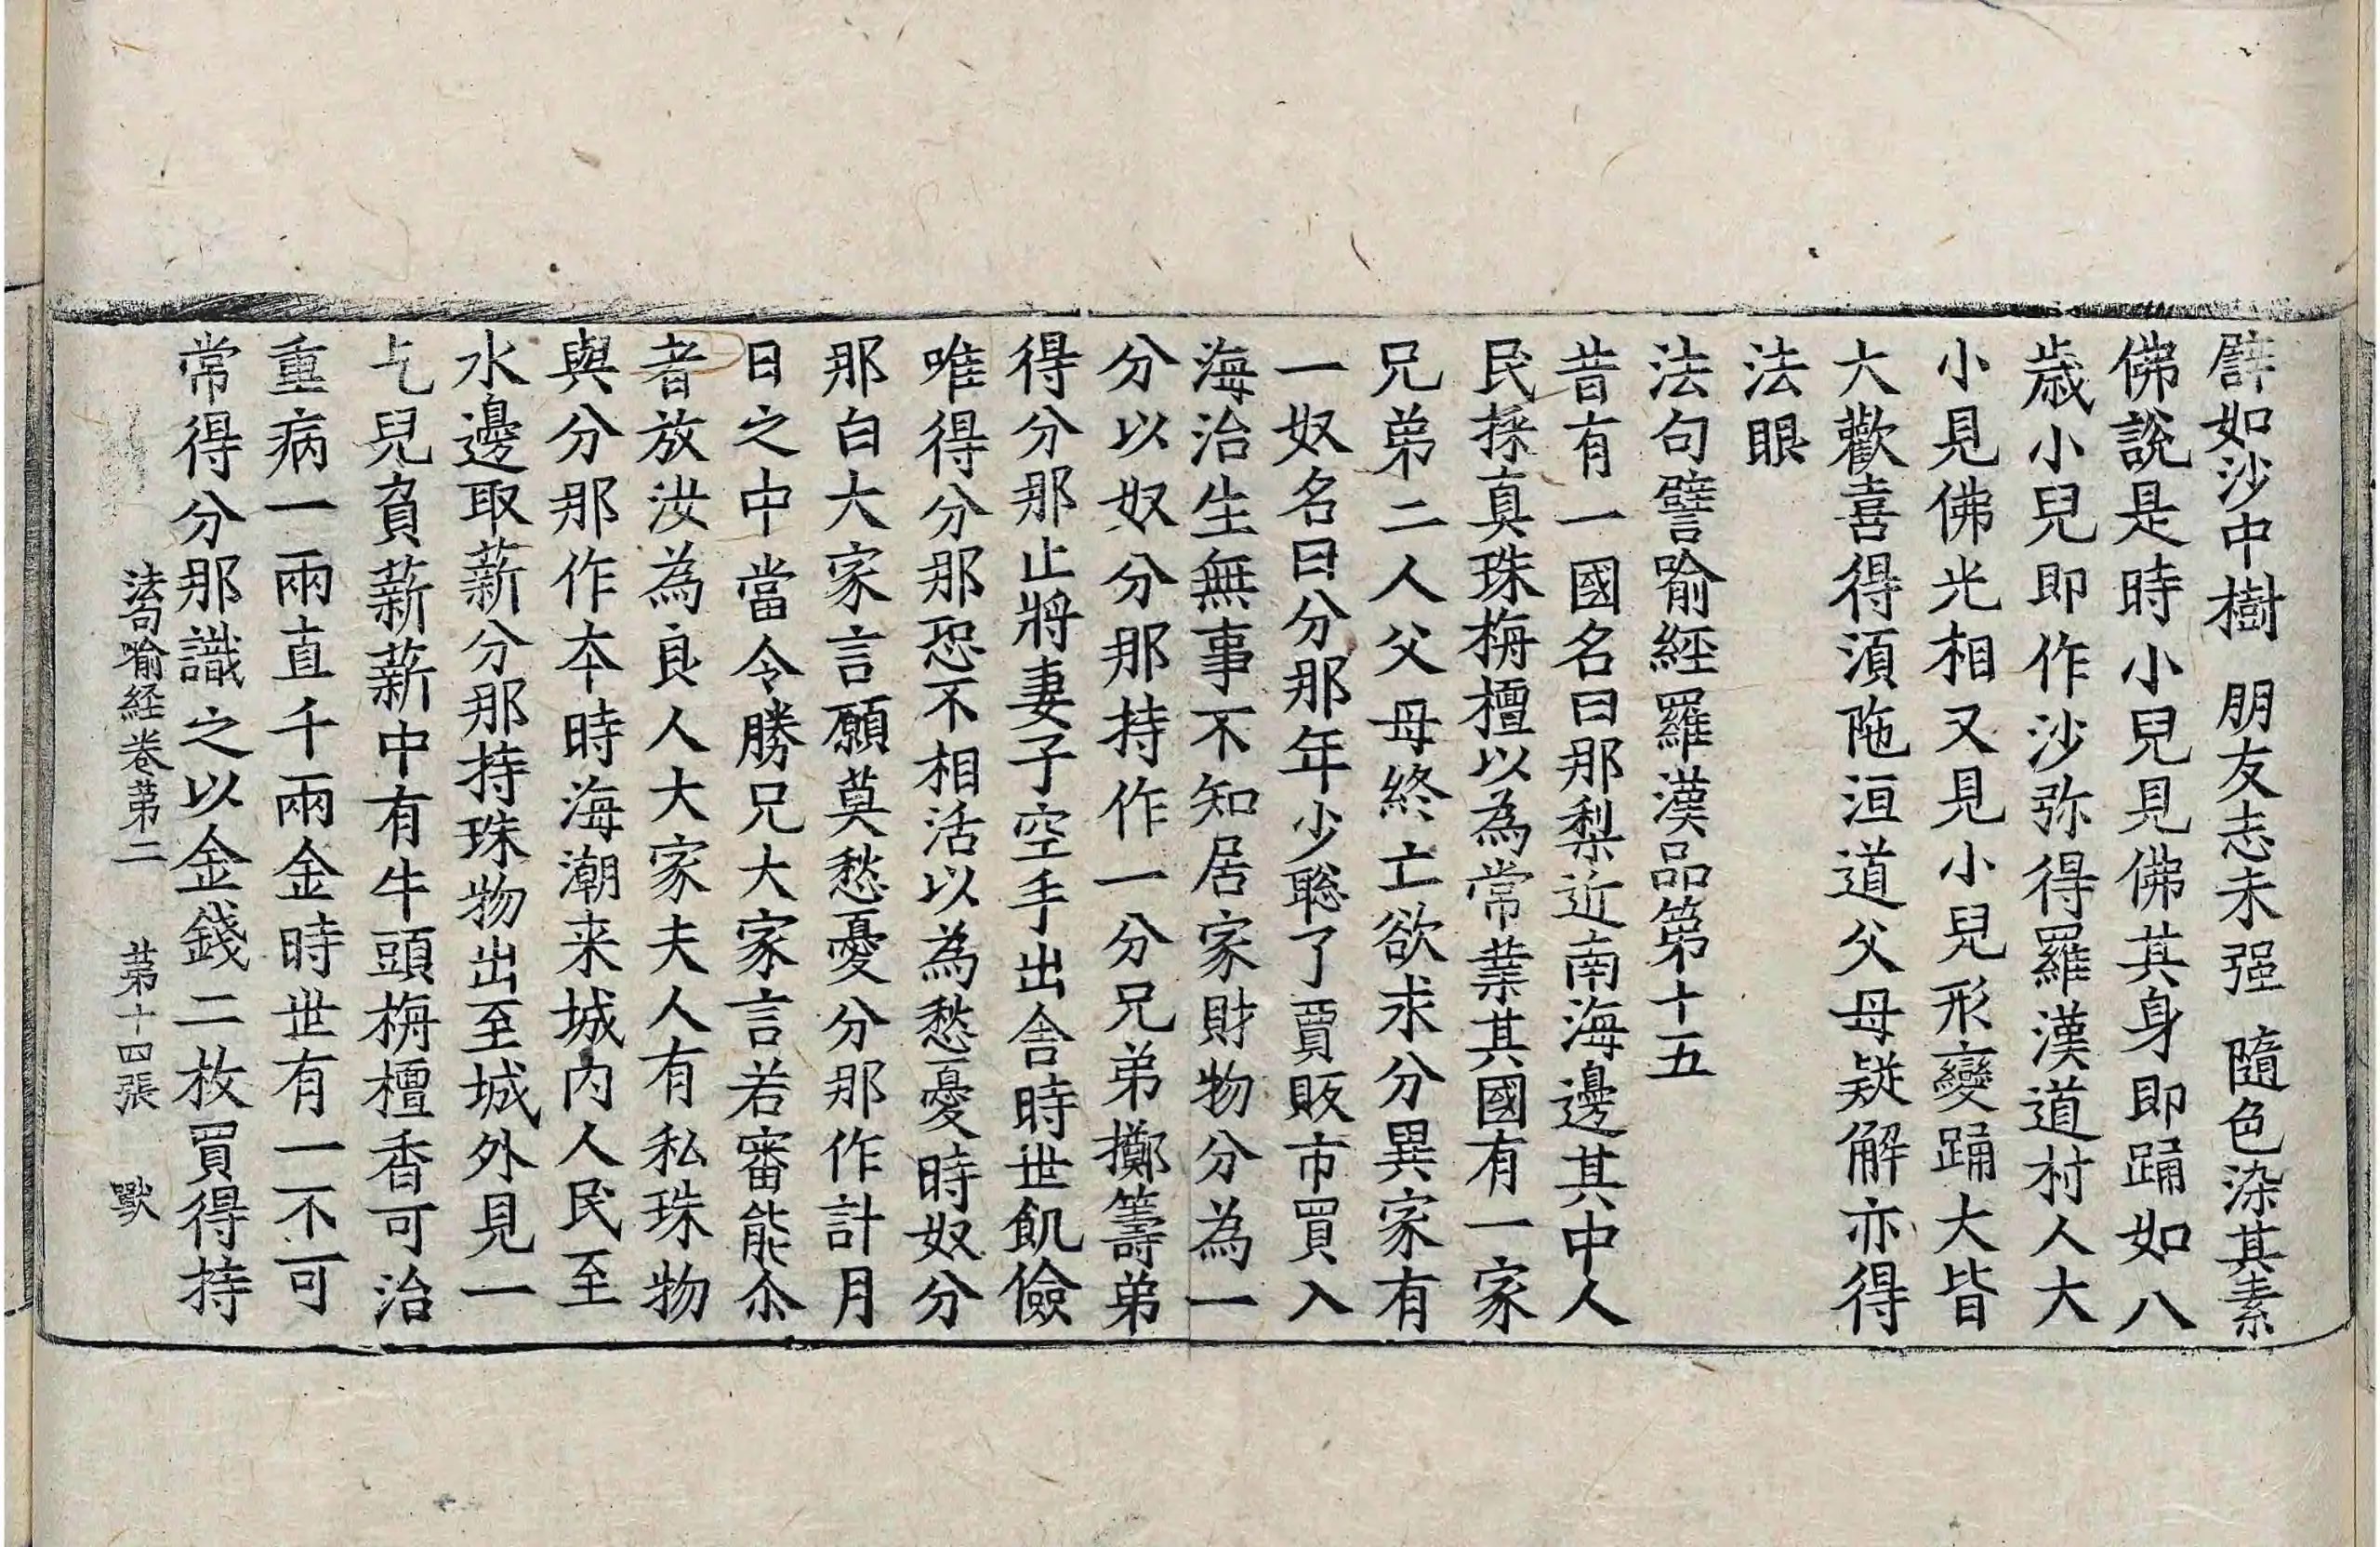 譬如沙中樹　朋友志未强　隨色染其素
佛說是時小兒見佛其身即踊如八
歳小兒即作沙弥得羅漢道村人大
小見佛光相又見小兒形變踊大皆
大歡喜得湏陁洹道父母疑解亦得
法眼
法句譬喻經羅漢品第十五
昔有一國名曰那梨近南海邊其中人
民採真珠栴檀以為常業其國有一家
兄弟二人父母終亡欲求分異家有
一奴名曰分那年少聡了賈販市買入
海治生無事不知居家財物分為一
分以奴分那持作一分兄弟擲籌弟
得分那止將妻子空手出舎時世飢儉
唯得分那恐不相活以為愁憂時奴分
那白大家言願莫愁憂分那作計月
日之中當令勝兄大家言若審能尒
者放汝為良人大家夫人有私珠物
與分那作本時海潮来城内人民至
水邊取薪分那持珠物出至城外見一
乞兒負薪薪中有牛頭栴檀香可治
重病一兩直千兩金時世有一不可
常得分那識之以金錢二枚買得持
法句喻経卷第二　第十四張　獸